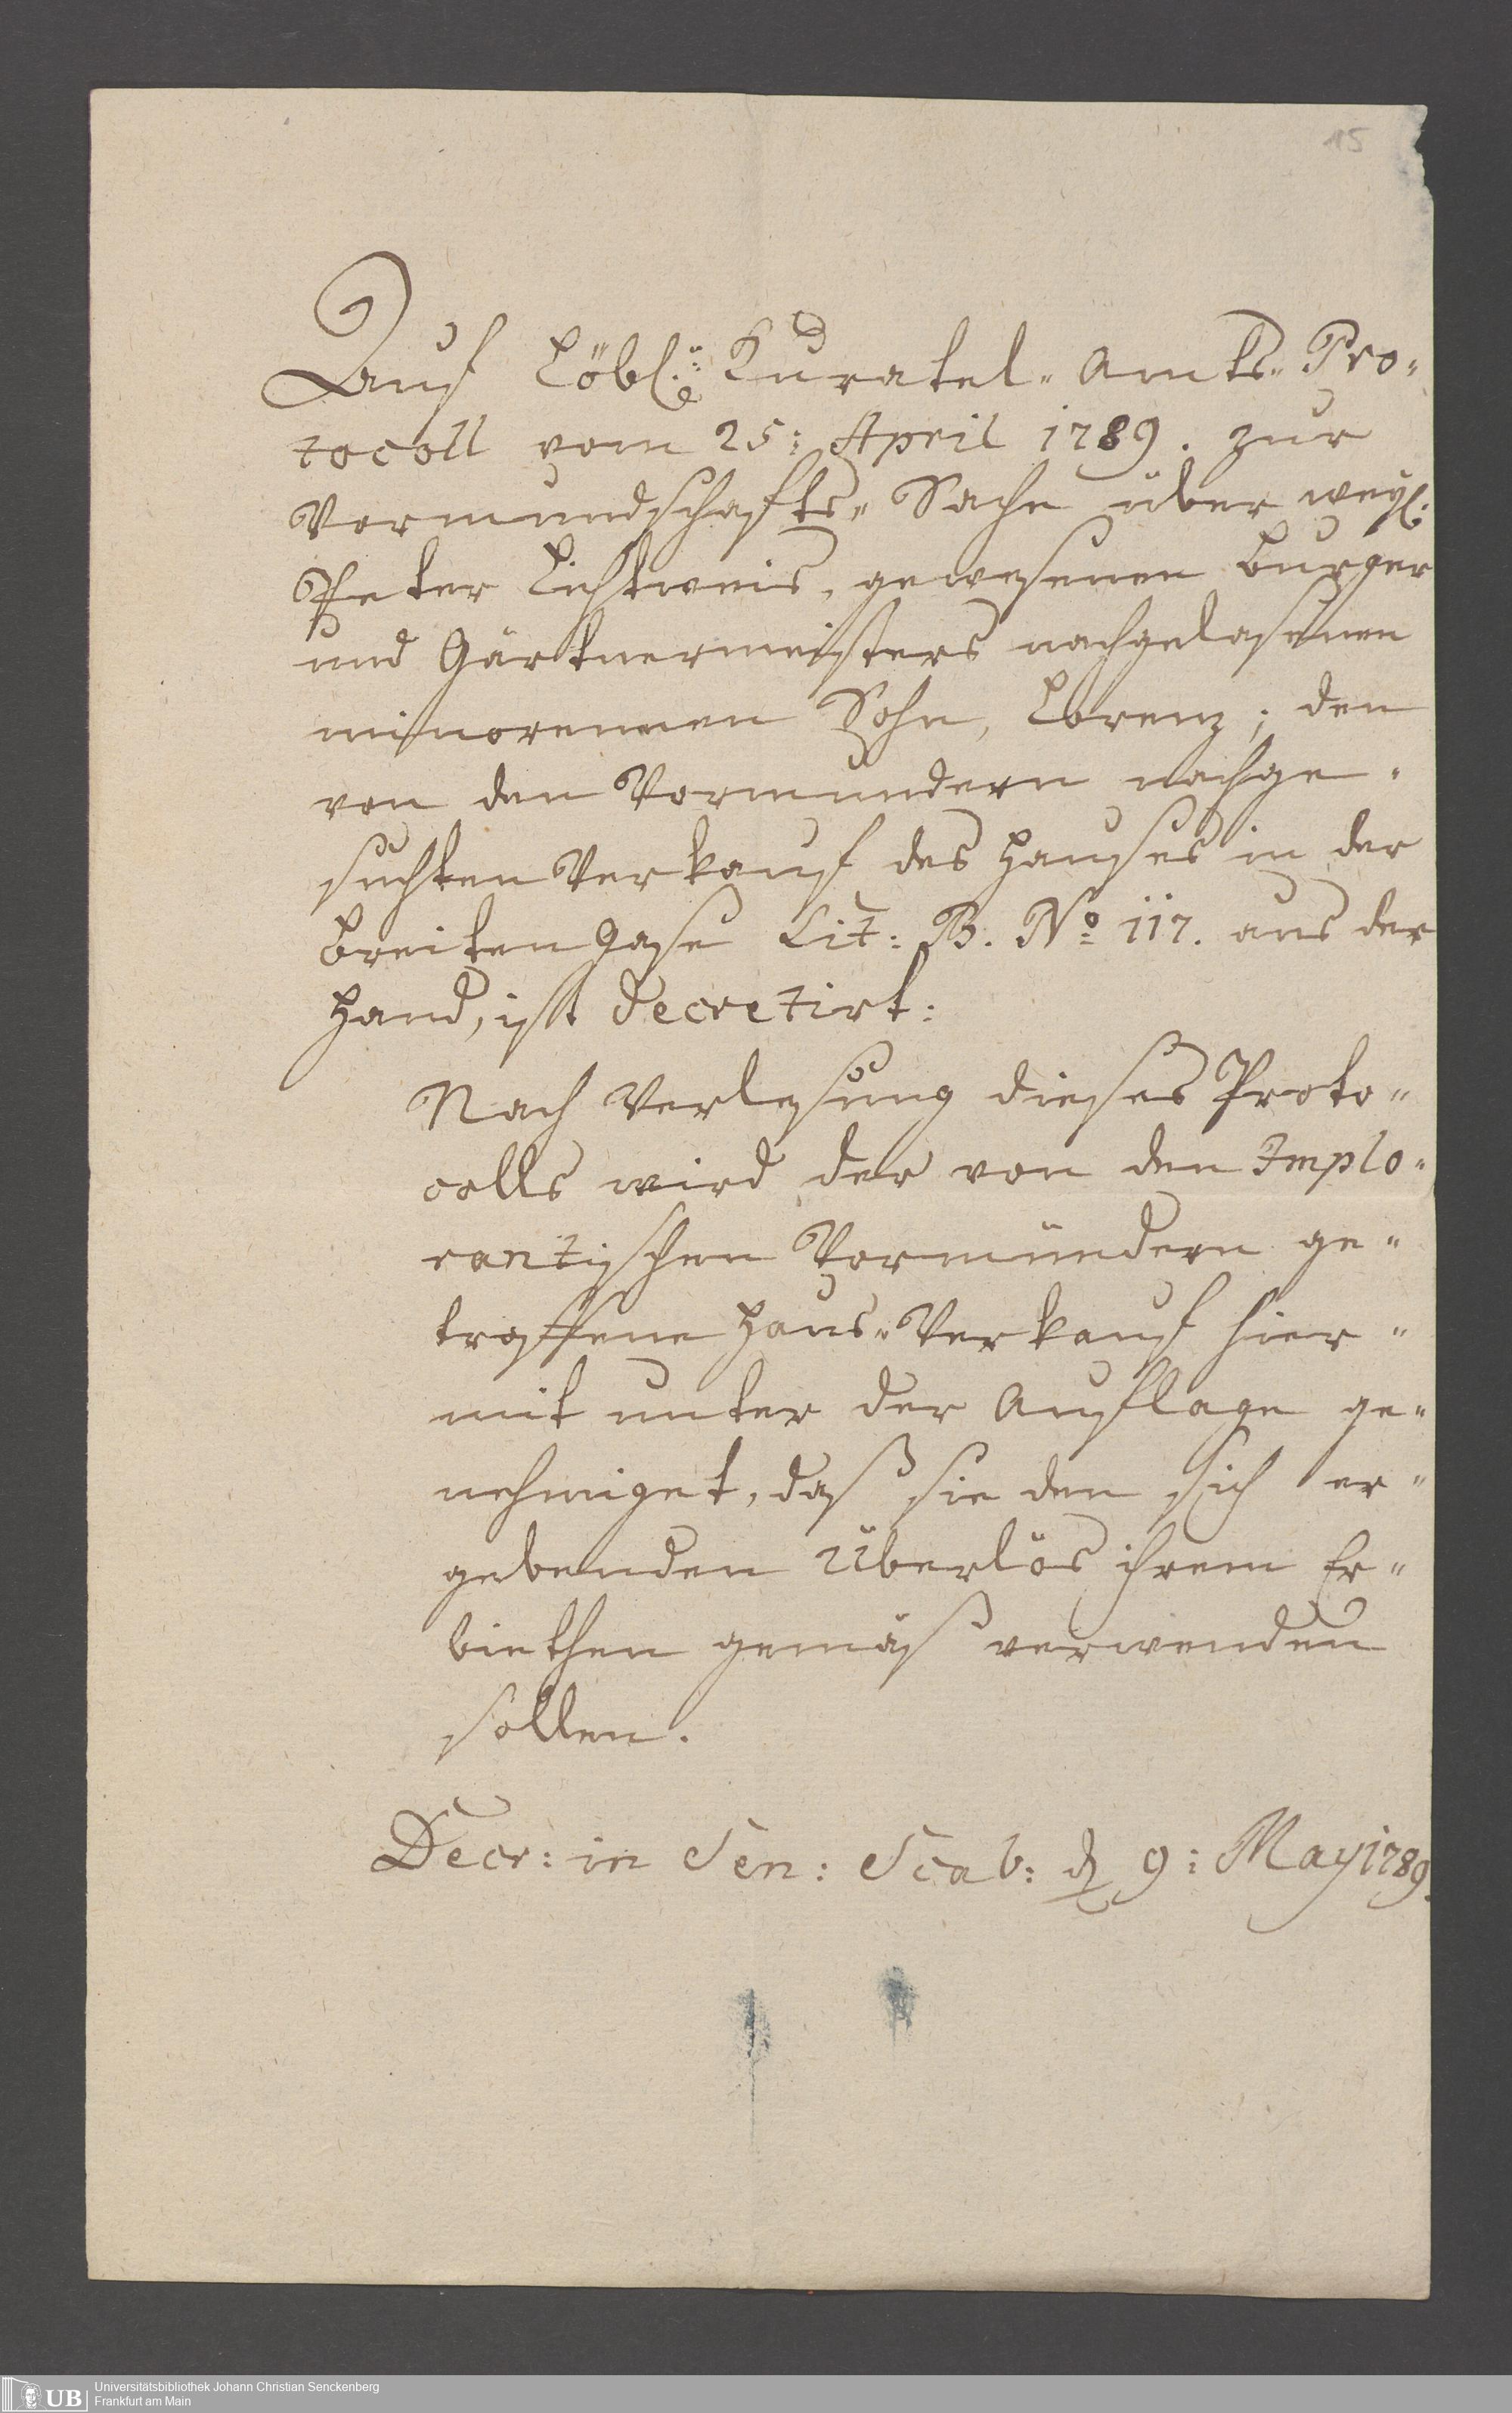 15
Auf Löbl: Curatel-Amts-Pro-
tocoll vom 25: April 1789. zur
Vormundschafts-Sache über weyl:
Peter Lichtweis, gewesenen Burger
und Gärtnermeisters nachgelasenen
minorennen Sohn, Lorenz; den
von den Vormundern nachge-
suchten Verkauf des Hauses in der
Breiten Gase Lit: B. No 117. aus der
Hand, ist decretirt:
Nach Verlesung dieses Proto-
colls wird der von den Implo-
rantischen Vormündern ge-
troffene Haus-Verkauf hier-
mit unter der Auflage ge-
nehmiget, daß sie den sich er-
gebenden Überlös ihrem Er-
biethen gemäß verwenden
sollen.
Decr: in Sen: Scab: d 9: May 1789.
UB Universitätsbibliothek Johann Christian Senckenberg
Frankfurt am Main